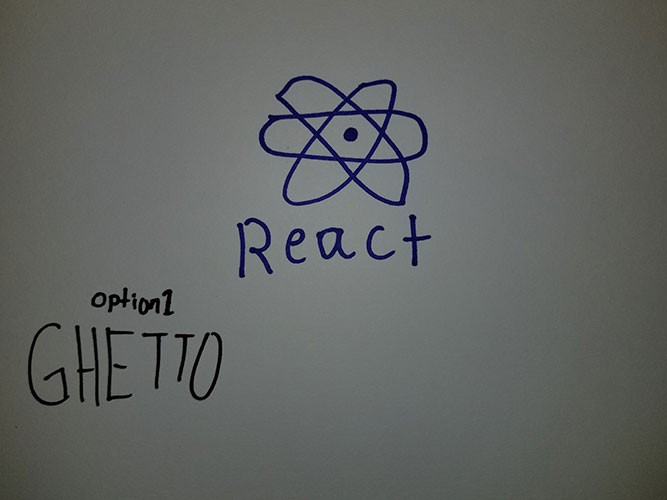 React
option1
GHETTO